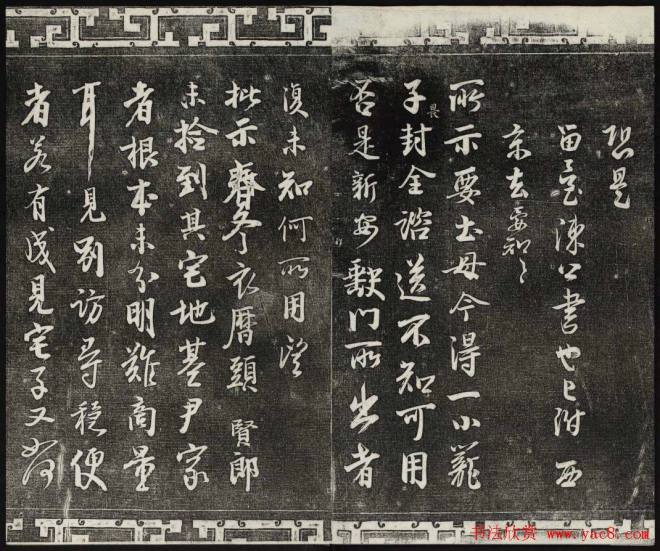 恐是
留臺陳公書也已附西
京去要知之
所示要土母今得一小籠
子封全諮送不知可用
畏
否是新安門所出者
復未知何所用望
批示齊冬衣曆頭賢郎
未拾到其宅地基尹家
者根本未分明難商量
耳見別訪尋穩便
者若有成見宅子又
书法欣赏 www.yac8.com